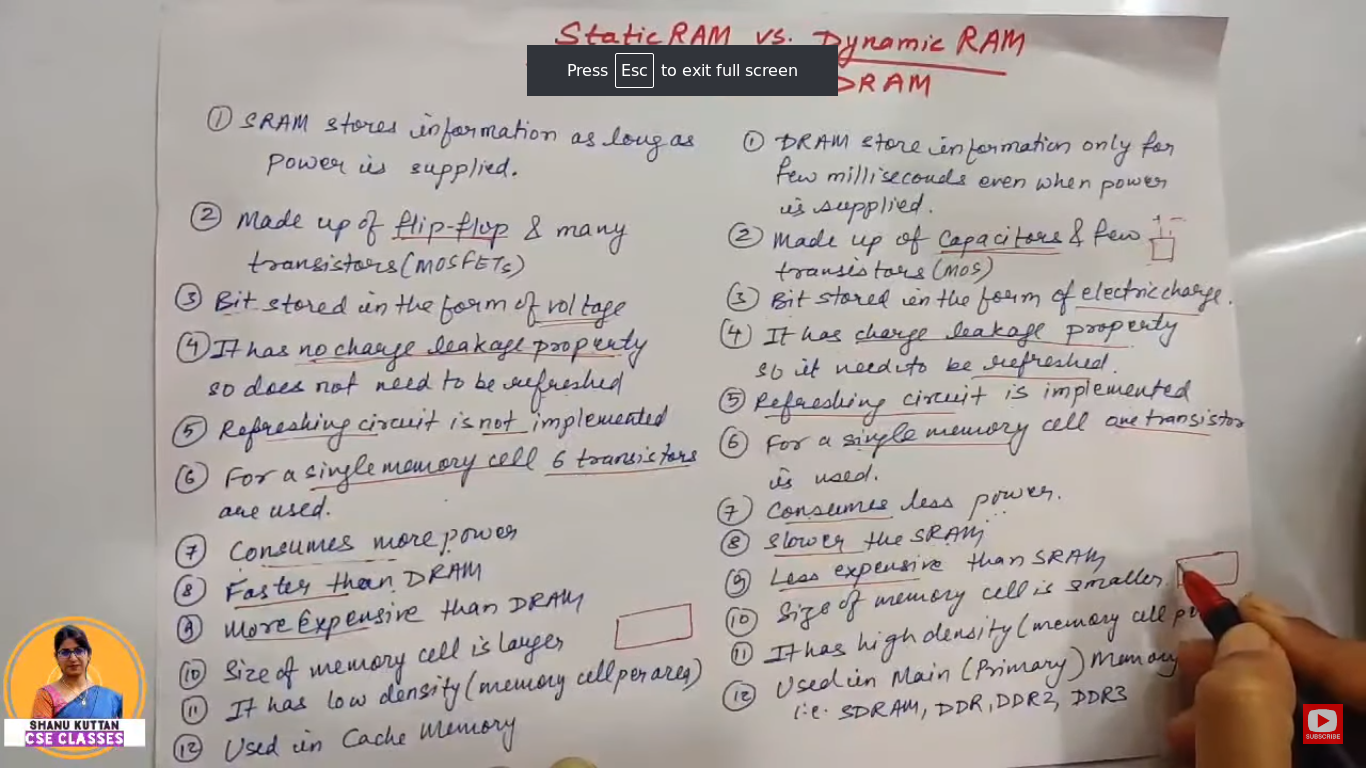 Static RAM vs. Dynamic RAM
Press Esc to exit full screen
DRAM
① SRAM stores information as long as
Power is supplied.
② Made up of flip-flop & many
transistors (MOSFETs)
③ Bit stored in the form of voltage
④ It has no charge leakage property
so does not need to be refreshed
⑤ Refreshing circuit is not implemented
⑥ For a single memory cell 6 transistors
are used.
⑦ Consumes more power
⑧ Faster than DRAM
⑨ More Expensive than DRAM
⑩ Size of memory cell is larger
⑪ It has low density (memory cell per area)
⑫ Used in Cache Memory
① DRAM store information only for
few milliseconds even when power
is supplied.
② Made up of capacitors & few
transistors (MOS)
③ Bit stored in the form of electric charge.
④ It has charge leakage property
so it need to be refreshed.
⑤ Refreshing circuit is implemented
⑥ For a single memory cell one transistor
is used.
⑦ Consumes less power.
⑧ Slower the SRAM
⑨ Less expensive than SRAM
⑩ Size of memory cell is smaller.
⑪ It has high density (memory cell
⑫ Used in Main (Primary) Memory
i.e. SDRAM, DDR, DDR2, DDR3
SHANU KUTTAN
CSE CLASSES
SUBSCRIBE